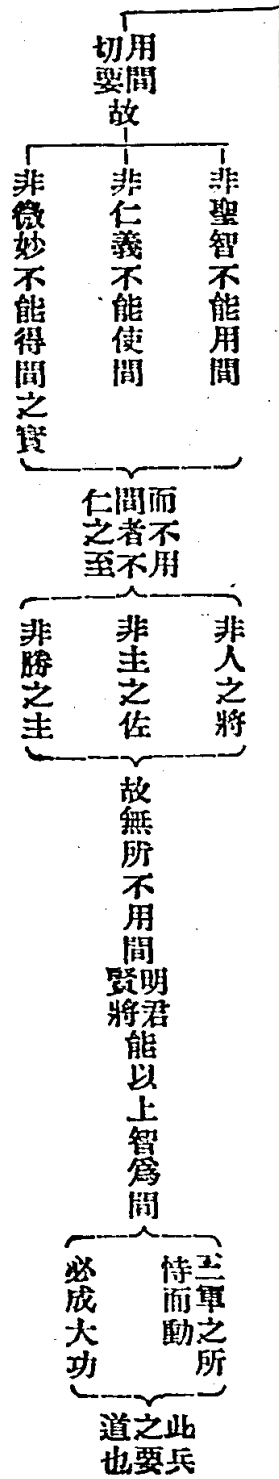 用間
切要
故
非聖智不能用間
非仁義不能使間
非微妙不能得間之實
而不用
間者不
仁之至
非人之將
非主之佐
非勝之主
故無所不用間
明君
賢將
能以上智爲間
三軍之所
恃而動
必成大功
此兵
之要
道也